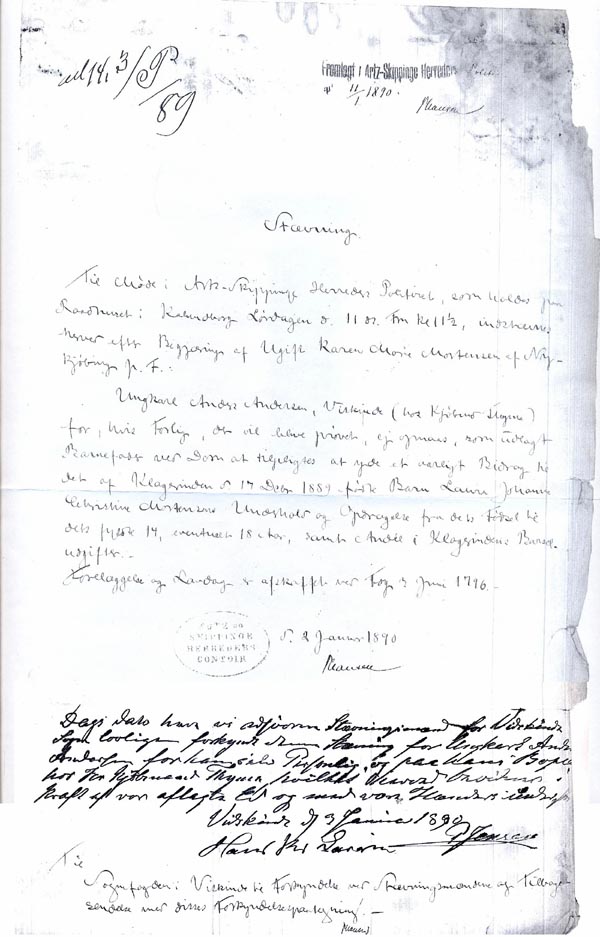 ad 14. 3/P
/89
Fremlagt i Artz-Skippinge Herreders Politi
11/1 1890.
PHansen
Stævning.
Til Møde i Artz-Skippinge Herreders Politiret, som holdes paa
Raadhuset i Kalundborg Lørdagen d. 11 ds. Fm Kl 11½, indstevnes
herved efter Begjæring af Ugift Karen Marie Mortensen af Ny-
kjøbing p. F.:
Ungkarl Anders Andersen, Viskinde (hos Kjøbmd )
for, hvis Forlig, det vil blive prøvet, ej opnaas, som udlagt
Barnefader ved Dom at tilpligtes at yde et aarligt Bidrag til
det af Klagerinden d 17 Decbr 1889 fødte Barn Laura Johanne
Christine Mortensens Underhold og Opdragelse fra dets Fødsel til
dets fyldte 14, eventuelt 18 Aar, samt Andel i Klagerindens Barsel-
udgifter.-
Forelæggelse og Lavdag er afskaffet ved Fog 3 Juni 1796.-
ARTZ OG
SKIPPINGE
HERREDERS
CONTOIR
d. 2 Januar 1890
PHansen
Dags Dato have vi edsvorne Stævningsmænd for Viskinde
Sogn lovligen forkyndt denne Stævning for Ungkarl Anders
Andersen for ham selv Personlig, og paa hans Bopæl
hos Hr Kjøbmand hvilket herved bevidnes i
Kraft af vor aflagte Ed og med vore Hænders Underskrift
Viskinde d 3 Januar 1890
Hans Larsen Jensen
Til
Sognefogden i Viskinde til Forkyndelse ved Stævningsmændene og Tilbage-
sendelse med disses Forkyndelsespaategning.-
PHansen